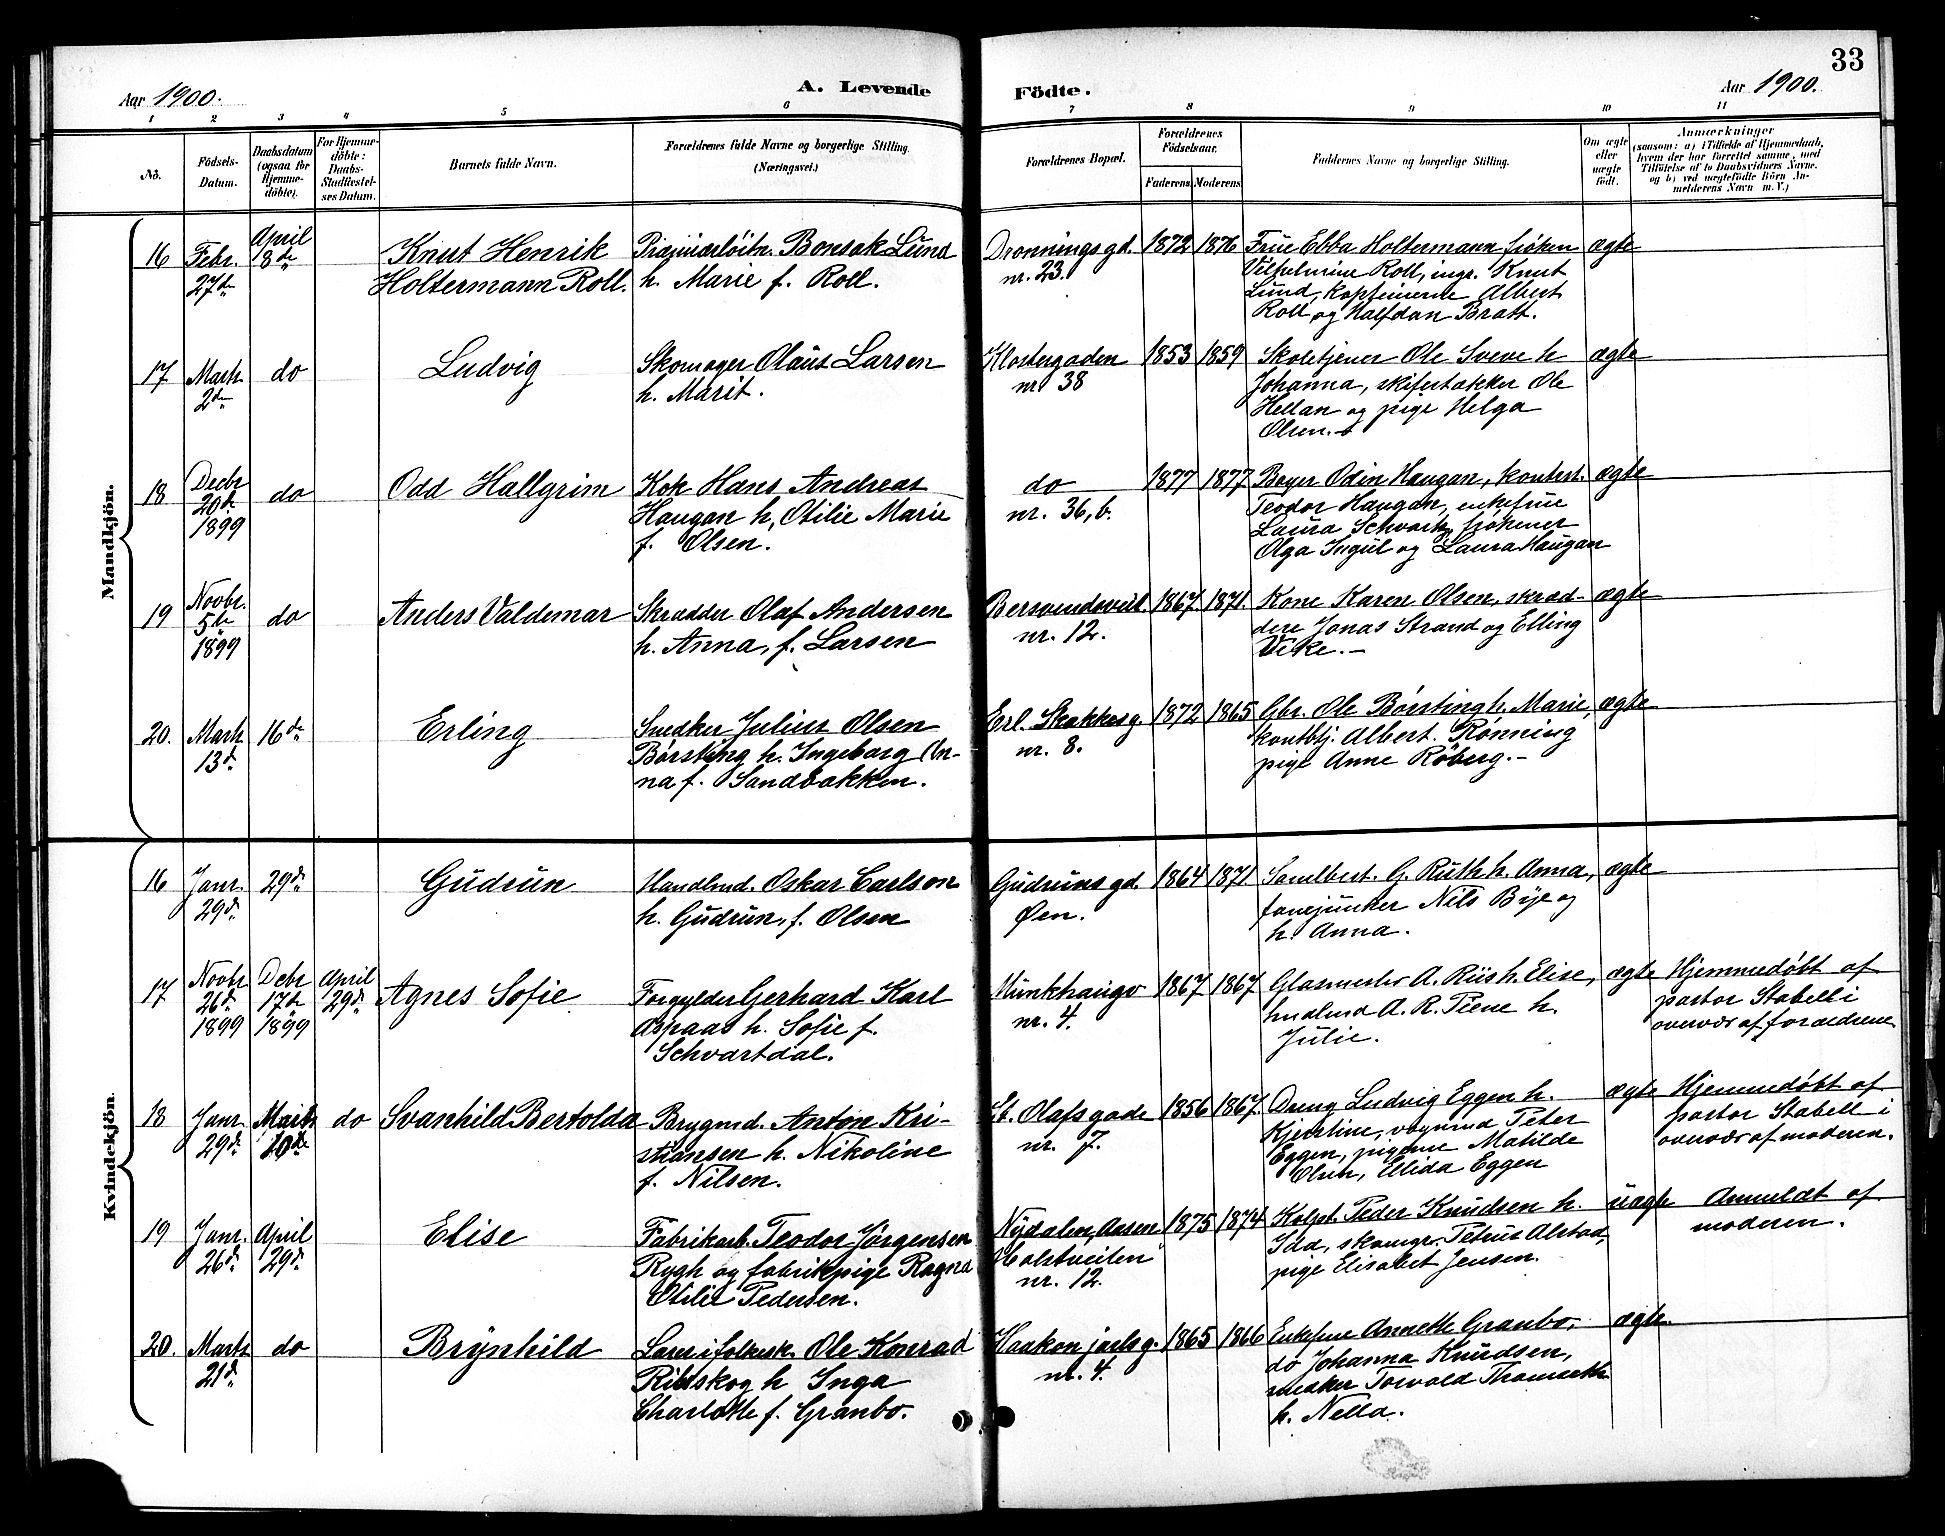 33
Aar 1900.
A. Levende
Födte.
Aar 1900.
1 2 3 4 5 6 7 8 9 10 11
No.
Födsels-
Datum.
Daabsdatum
(ogsaa for
Hjemme-
döbte).
For Hjemme-
döbte:
Daabs-
Stadfæstel-
ses Datum.
Barnets fulde Navn.
Forældrenes fulde Navne og borgerlige Stilling.
(Næringsvei.)
Forældrenes Bopæl.
Forældrenes
Födselsaar.
Faderens
Moderens
Faddernes Navne og borgerlige Stilling.
Om ægte
eller
uægte
födt.
Anmærkninger
(saasom: a) i Tilfælde af Hjemmedaab,
hvem der har forrettet samme, med
Tilföielse af to Daabsvidners Navne.
og b) ved uægtefödte Börn An-
melderens Navn m.V.)
Mandkjön.
16 Febr. 27de
April 8de
Knut Henrik
Holtermann Roll.
Premierløitn. Bonsak Lund
h. Marie f. Roll.
Dronningsgd.
nr. 23.
1872 1876
Frue Ebba Holtermann frøken
Vilhelmine Roll, ingr. Knut
Lund, kapteinerne Albert
Roll og Halfdan Bratt.
ægte
17 Marts 2den
do
Ludvig
Skomager Olaus Larsen
h. Marit.
Klostergaden
nr 38
1853 1859
Skoletjener Ole Sveve h
Johanna, skifertækker Ole
Hellan og pige Helga
Olsen.
ægte
18 Decbr 20de 1899
do
Odd Hallgrim
Kok Hans Andreas
Haugan h, Otilie Marie
f. Olsen.
do
nr. 36, b.
1877 1877
Bager Odin Haugan, kontorst.
Teodor Haugan, enkefrue
Laura Schvartz, frøkener
Olga Ingul og Laura Haugan
ægte
19 Novbr. 5te 1899
do
Anders Valdemar
Skrædder Olaf Andersen
h. Anna, f. Larsen
Bersvendsveit
nr. 12.
1867 1871
Kone Karen Olsen, skræd-
dere Jonas Strand og Elling
Vike.-
ægte
20. Marts 13d.
16de
Erling
Snedker Julius Olsen
Børsting h. Ingeborg An-
na f. Sandbakken.
Erl. Skakkesg.
nr. 8.
1872 1865
Gbr. Ole Børsting h. Marie,
kontbtj. Albert Rønning
pige Anne Røberg.-
ægte
Kvindekjön.
16 Janr. 29d.
29d.
Gudrun
Handlmd. Oskar Carlson
h. Gudrun, f. Olsen
Gudruns gd.
Øen.
1864 1871
G. Ruth h. Anna,
fanejunker Nils Bye og
h. Anna.
ægte
17 Novbr 26d. 1899
Debr 17de 1899
April 29d.
Agnes Sofie
Forgylder Gerhard Karl
Aspaas h. Sofie f.
Schvartdal.
Munkhaugv
nr. 4.
1867 1867
Glasmester A. Riis h. Elise,
hndlmd A. R. Tiene h.
Julie.
ægte
Hjemmedøbt af
pastor Stabell i
overvær af forældrene
18 Janr. 29d.
Marts 10de
do
Svanhild Bertolda
Brygmd. Anton Kri-
stiansen h. Nikoline
f. Nilsen.
St. Olafs gade
nr. 7.
1856 1867
Dreng Ludvig Eggen h.
Kjerstine, vognmd Peter
Eggen, pigerne Matilde
Olsen, Elida Eggen
ægte
Hjemmedøbt af
pastor Stabell i
overvær af moderen.
19 Janr. 26d.
April 29d.
Elise
Fabrikarb. Teodor Jørgensen
Rygh og fabrikpige Ragna
Otilie Pedersen.
Nydalen, Aasen
Holstveiten
nr. 12
1875 1874
Peder Knudsen h.
Ida, skomgr. Petrus Alstad,
pige Elisabet Jensen.
uægte
Anmeldt af
moderen.
20. Marts 21d.
do
Brynhild
Lærer i folkesk. Ole Konrad
Ribskog h Inga
Charlotte f. Granbo.
Haakon jarls g.
nr. 4.
1865 1866
Enkefrue Annette Granbo,
do Johanna Knudsen,
snedker Torvald
h. Nella.
ægte.